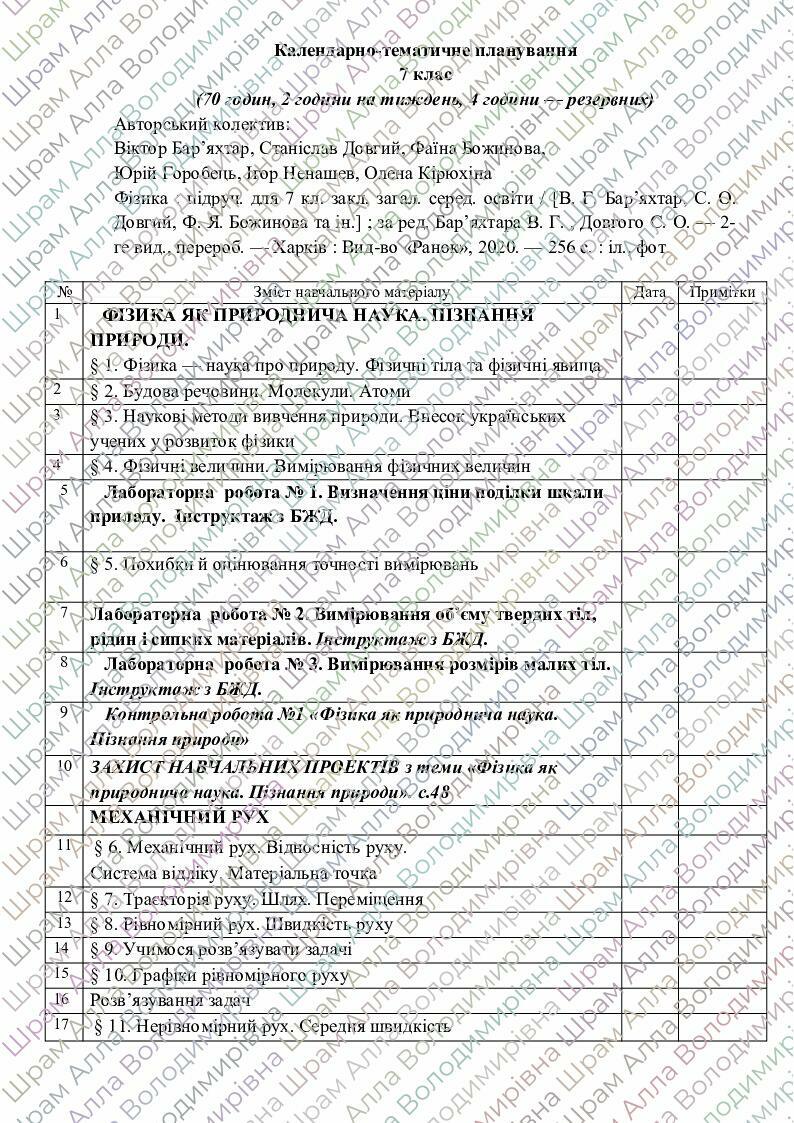 Календарно-тематичне планування
7 клас
(70 годин, 2 години на тиждень, 4 години — резервних)
Авторський колектив:
Віктор Бар’яхтар, Станіслав Довгий, Фаїна Божинова,
Юрій Горобець, Ігор Ненашев, Олена Кірюхіна
Фізика : підруч. для 7 кл. закл. загал. серед. освіти / [В. Г. Бар’яхтар, С. О.
Довгий, Ф. Я. Божинова та ін.] ; за ред. Бар’яхтара В. Г. , Довгого С. О. — 2-
ге вид., перероб. — Харків : Вид-во «Ранок», 2020. — 256 с. : іл., фот
№ Зміст навчального матеріалу Дата Примітки
1 ФІЗИКА ЯК ПРИРОДНИЧА НАУКА. ПІЗНАННЯ
ПРИРОДИ.
§ 1. Фізика — наука про природу. Фізичні тіла та фізичні явища
2 § 2. Будова речовини. Молекули. Атоми
3 § 3. Наукові методи вивчення природи. Внесок українських
учених у розвиток фізики
4 § 4. Фізичні величини. Вимірювання фізичних величин
5 Лабораторна робота № 1. Визначення ціни поділки шкали
приладу. Інструктаж з БЖД.
6 § 5. Похибки й оцінювання точності вимірювань
7 Лабораторна робота № 2. Вимірювання об’єму твердих тіл,
рідин і сипких матеріалів. Інструктаж з БЖД.
8 Лабораторна робота № 3. Вимірювання розмірів малих тіл.
Інструктаж з БЖД.
9 Контрольна робота №1 «Фізика як природнича наука.
Пізнання природи»
10 ЗАХИСТ НАВЧАЛЬНИХ ПРОЕКТІВ з теми «Фізика як
природнича наука. Пізнання природи». с.48
МЕХАНІЧНИЙ РУХ
11 § 6. Механічний рух. Відносність руху.
Система відліку. Матеріальна точка
12 § 7. Траєкторія руху. Шлях. Переміщення
13 § 8. Рівномірний рух. Швидкість руху
14 § 9. Учимося розв’язувати задачі
15 § 10. Графіки рівномірного руху
16 Розв’язування задач
17 § 11. Нерівномірний рух. Середня швидкість
Шрам Алла Володимирівна